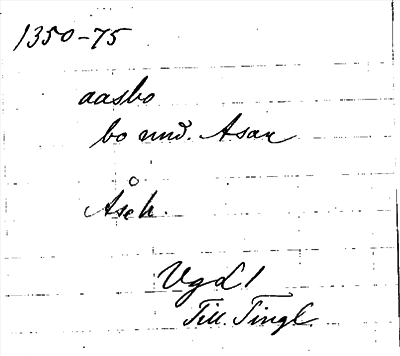 1350-75
aasbo
bo und. Asar
Ås h.
Vgd 1
Till. Tingl.